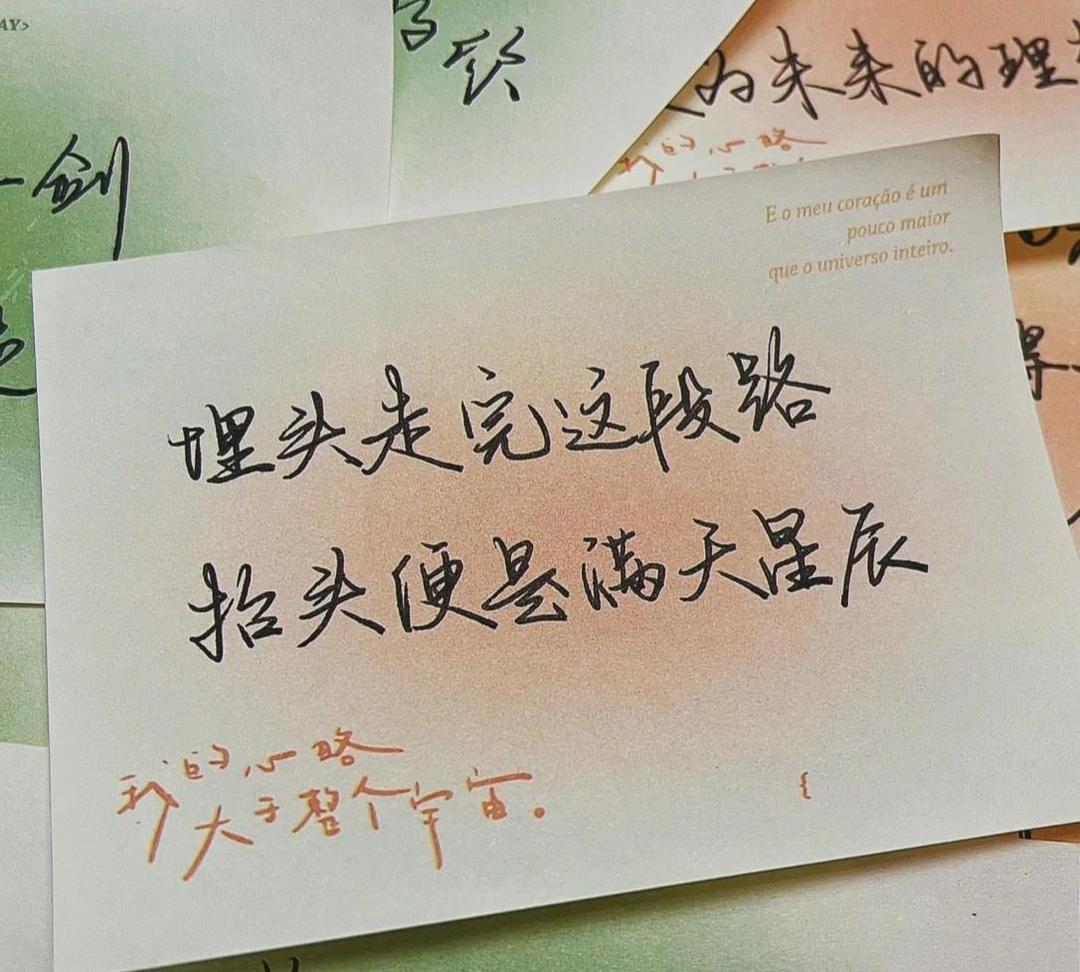 AY>
一剑
为未来的理
我的心略
E o meu coração é um
pouco maior
que o universo inteiro.
埋头走完这段路
抬头便是满天星辰
我的心略
大于整个宇宙。
{